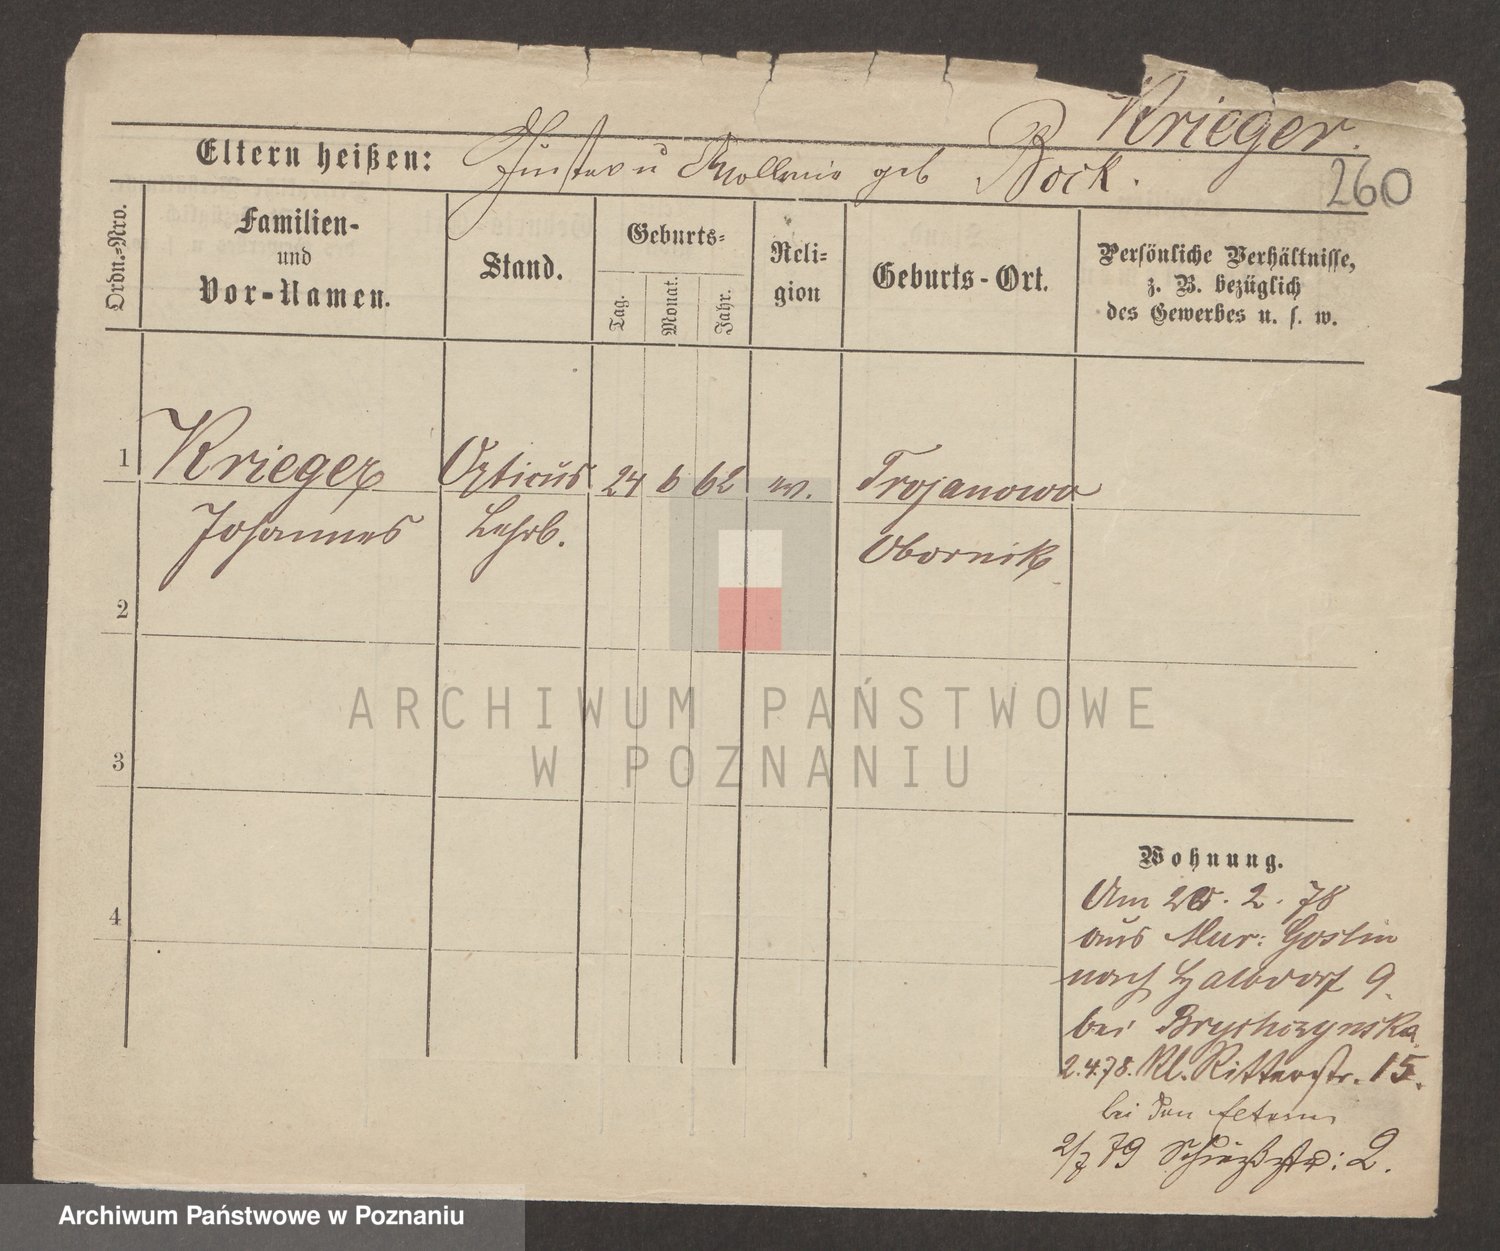 Krieger.
Eltern heißen: Gustav u geb Bock.
260
Ordn.-Nro.
Familien-
und
Vor-Namen.
Stand.
Geburts-
Tag.
Monat.
Jahr.
Reli-
gion
Geburts-Ort.
Persönliche Verhältnisse,
z. B. bezüglich
des Gewerbes u. s. w.
1 Krieger Opticus 24 6 62 ev. Trojanowo
Johannes Lehrb. Obornik
2
3
4
ARCHIWUM PAŃSTWOWE
W POZNANIU
Wohnung.
Am 2. 78
aus Mur: Goslin
nach Halbdorf 9.
bei Brychczynska
2.4.78. Kl. Ritterstr. 15.
bei den Eltern
2/7 79 Schießstr: 2.
Archiwum Państwowe w Poznaniu